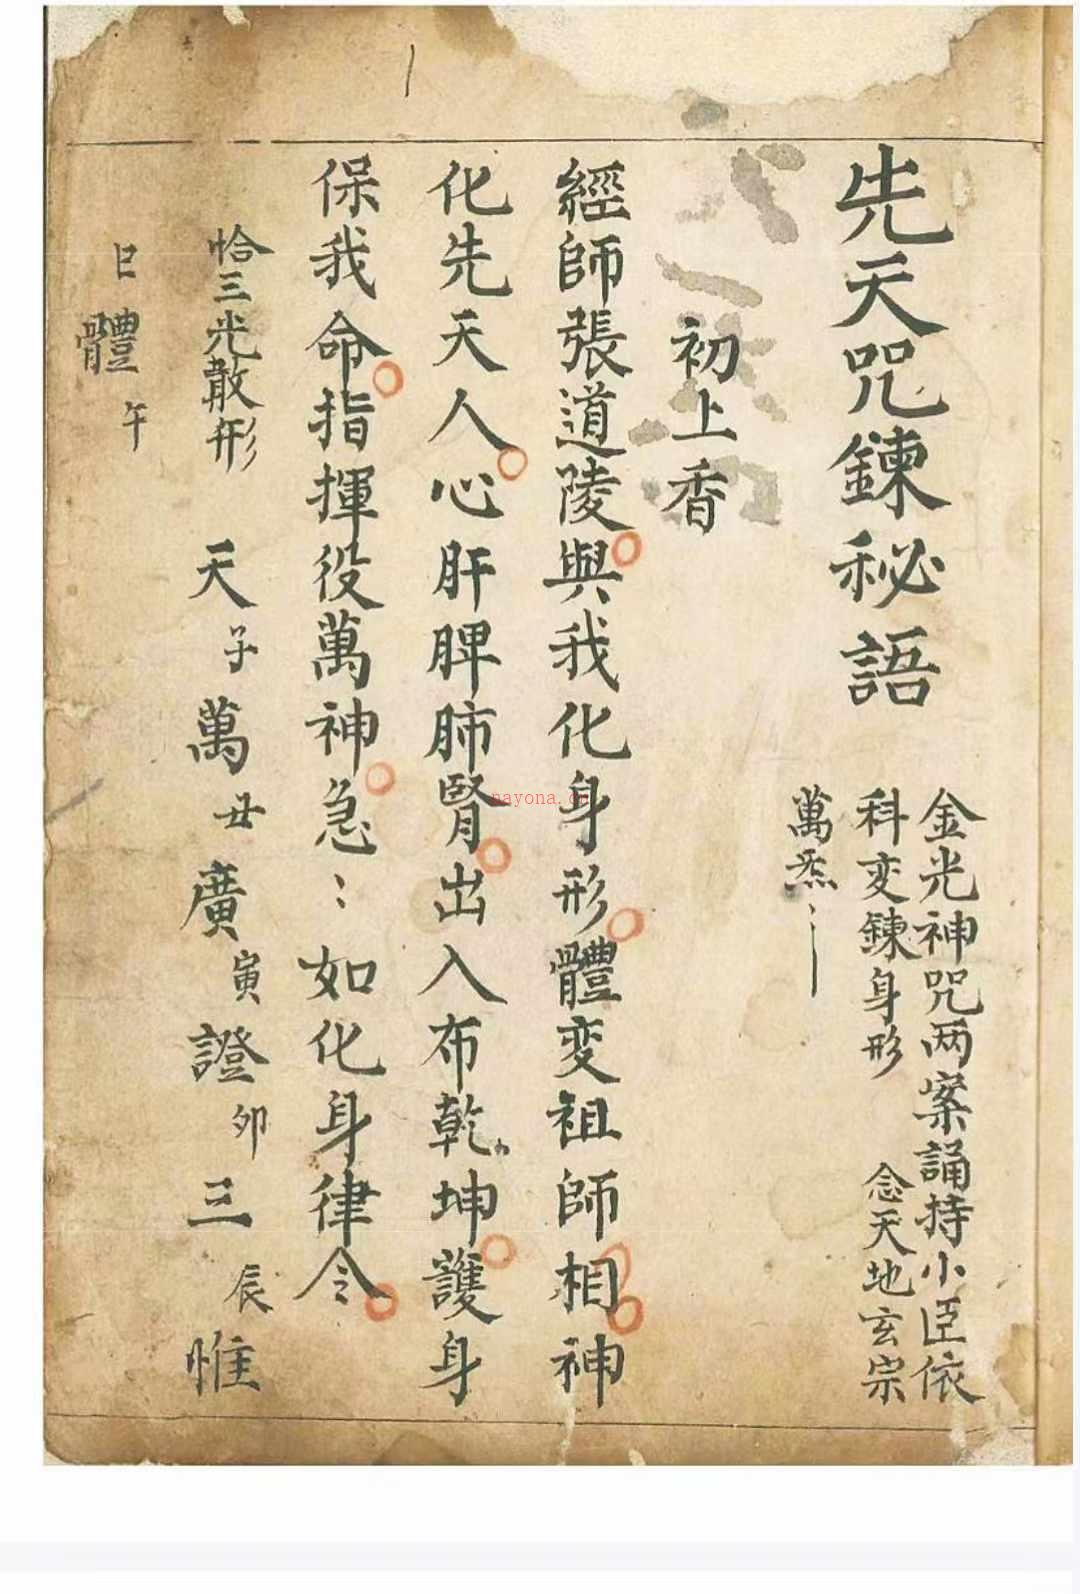 先天咒鍊秘語
金光神咒两案誦持小臣依
科变鍊身形 念天地玄宗
萬炁〻
初上香
經師張道陵與我化身形體变祖師相神
化先天人心肝脾肺腎出入布乾坤護身
保我命指揮役萬神急〻如化身律令
恰三光散形 天子萬丑廣寅證卯三辰惟
巳體午
nayona.cn